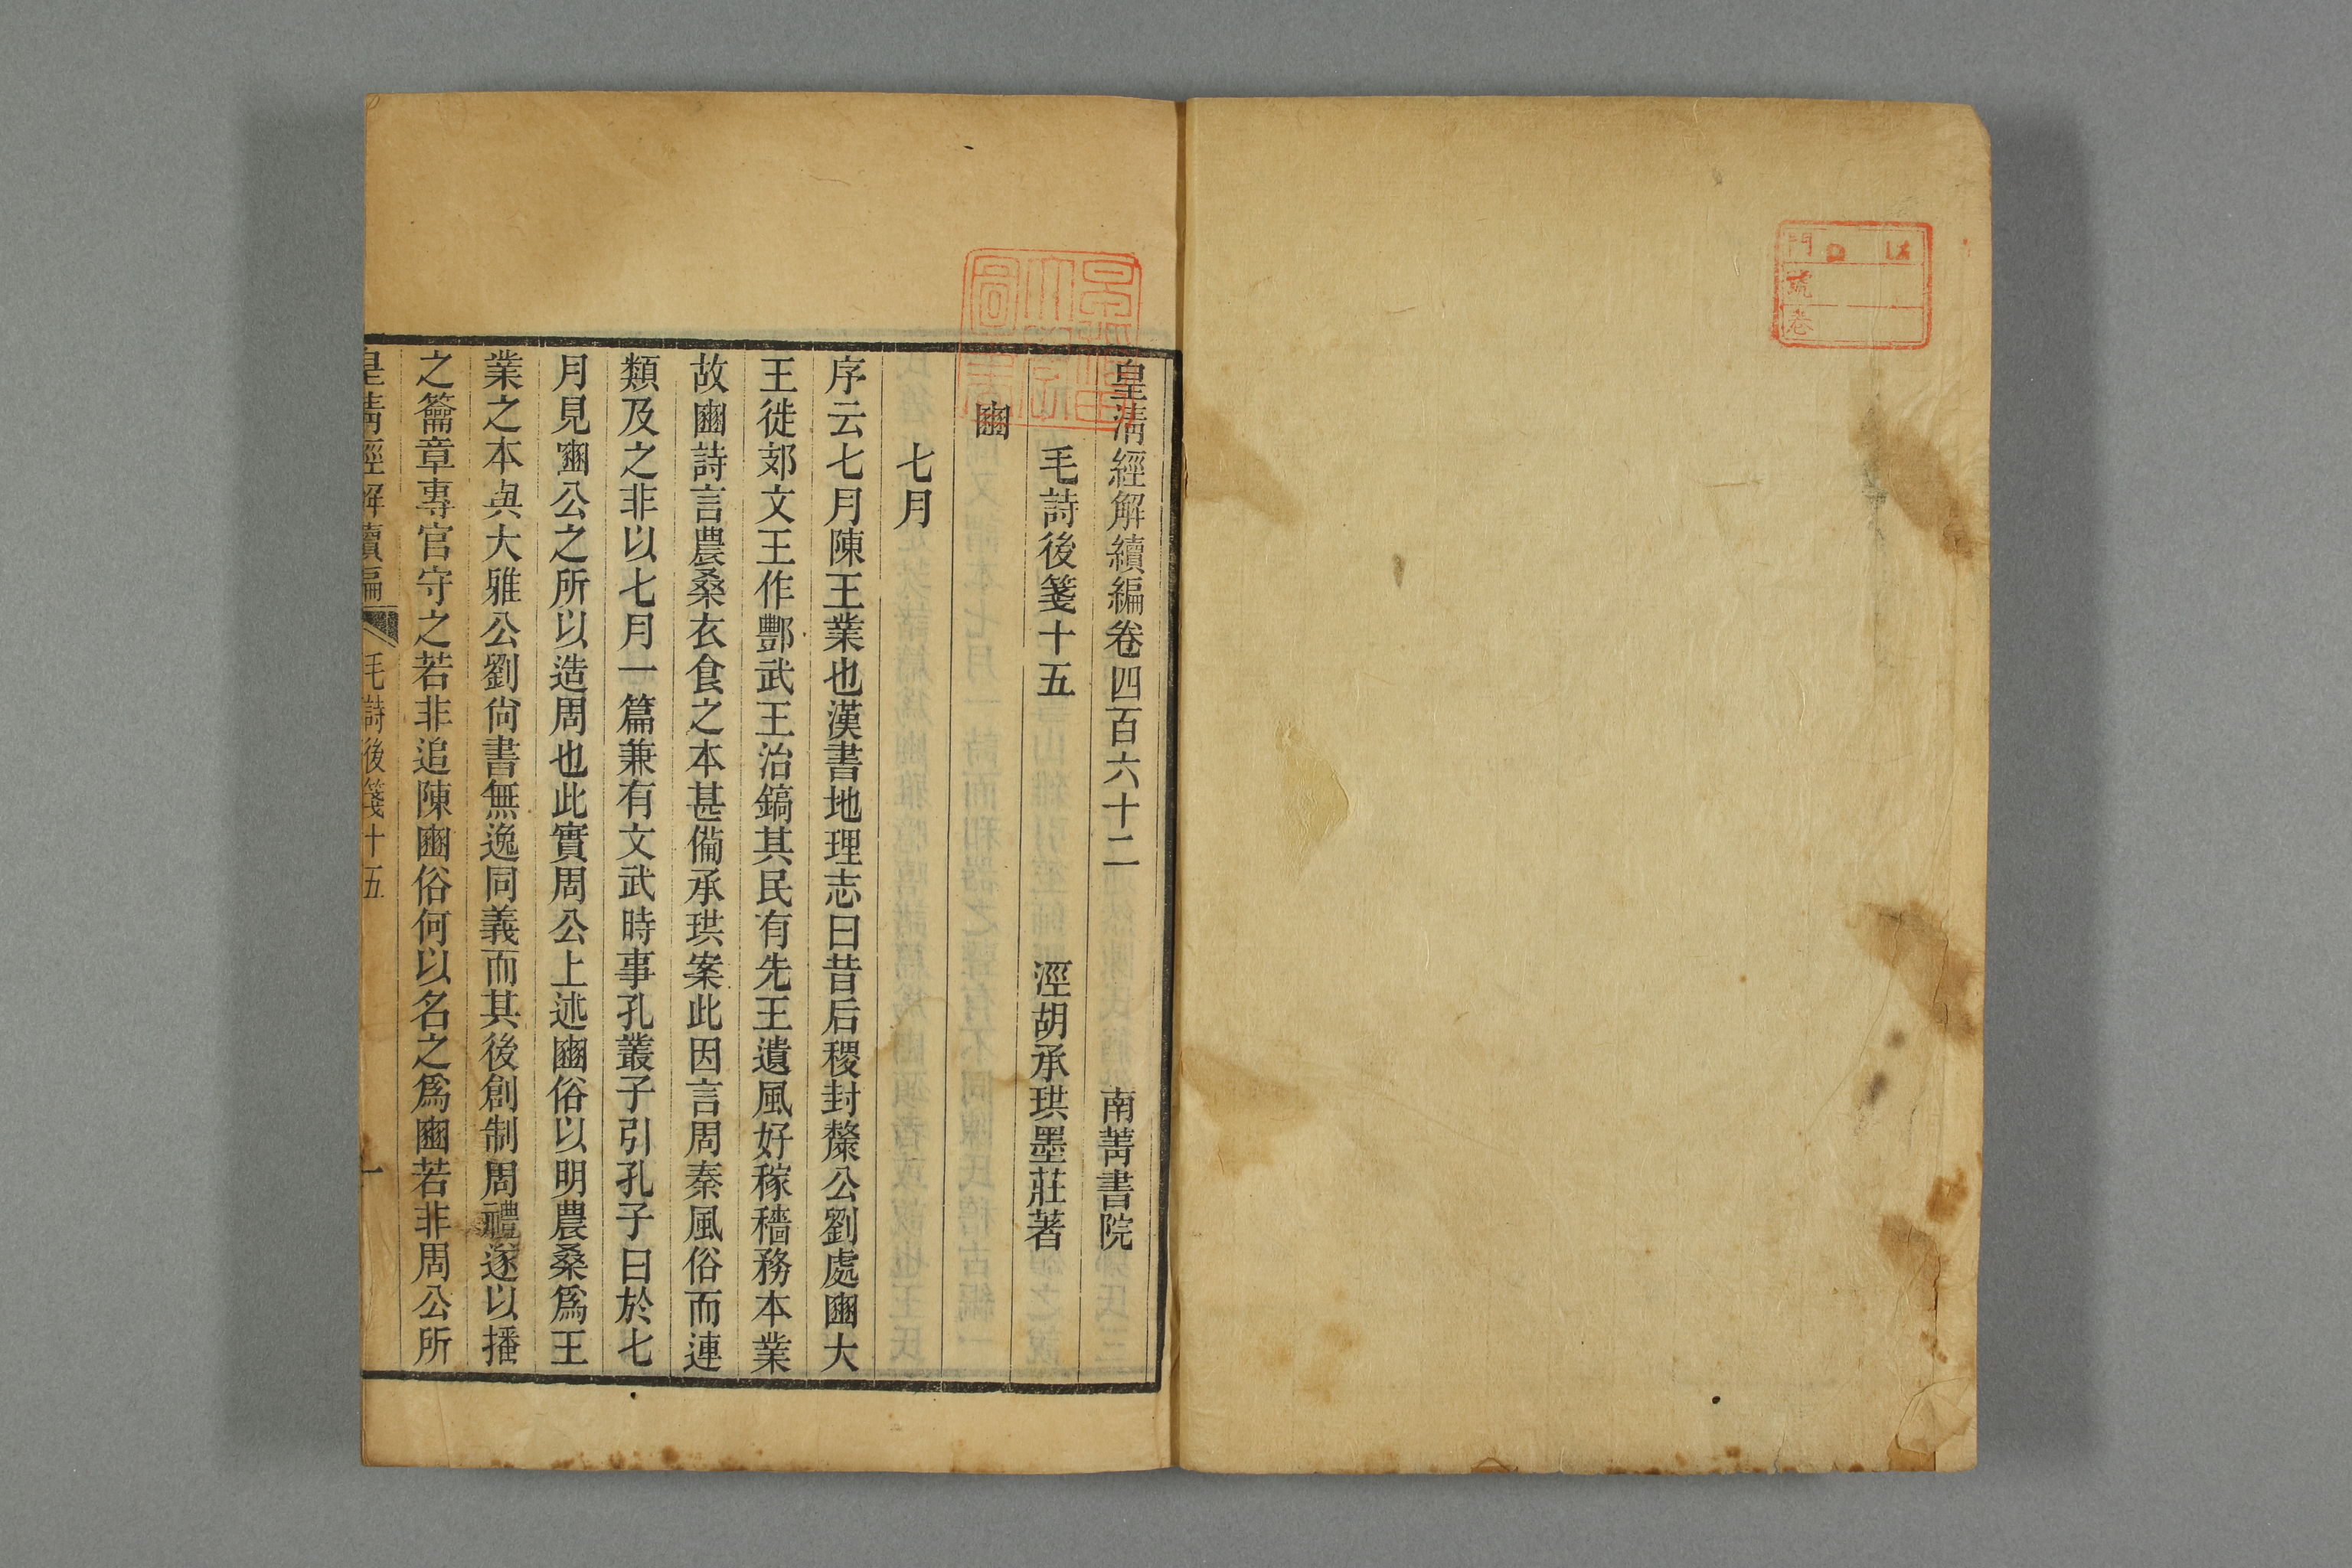 門
號
卷
皇清經解續編卷四百六十二 南菁書院
毛詩後箋十五 涇胡承珙墨莊著
豳
七月
序云七月陳王業也漢書地理志曰昔后稷封斄公劉處豳大
王徙郊文王作酆武王治鎬其民有先王遺風好稼穡務本業
故豳詩言農桑衣食之本甚備承珙案此因言周秦風俗而連
類及之非以七月一篇兼有文武時事孔叢子引孔子曰於七
月見豳公之所以造周也此實周公上述豳俗以明農桑爲王
業之本與大雅公劉尙書無逸同義而其後創制周禮遂以播
之籥章專官守之若非追陳豳俗何以名之爲豳若非周公所
皇清經解續編 毛詩後箋十五 一